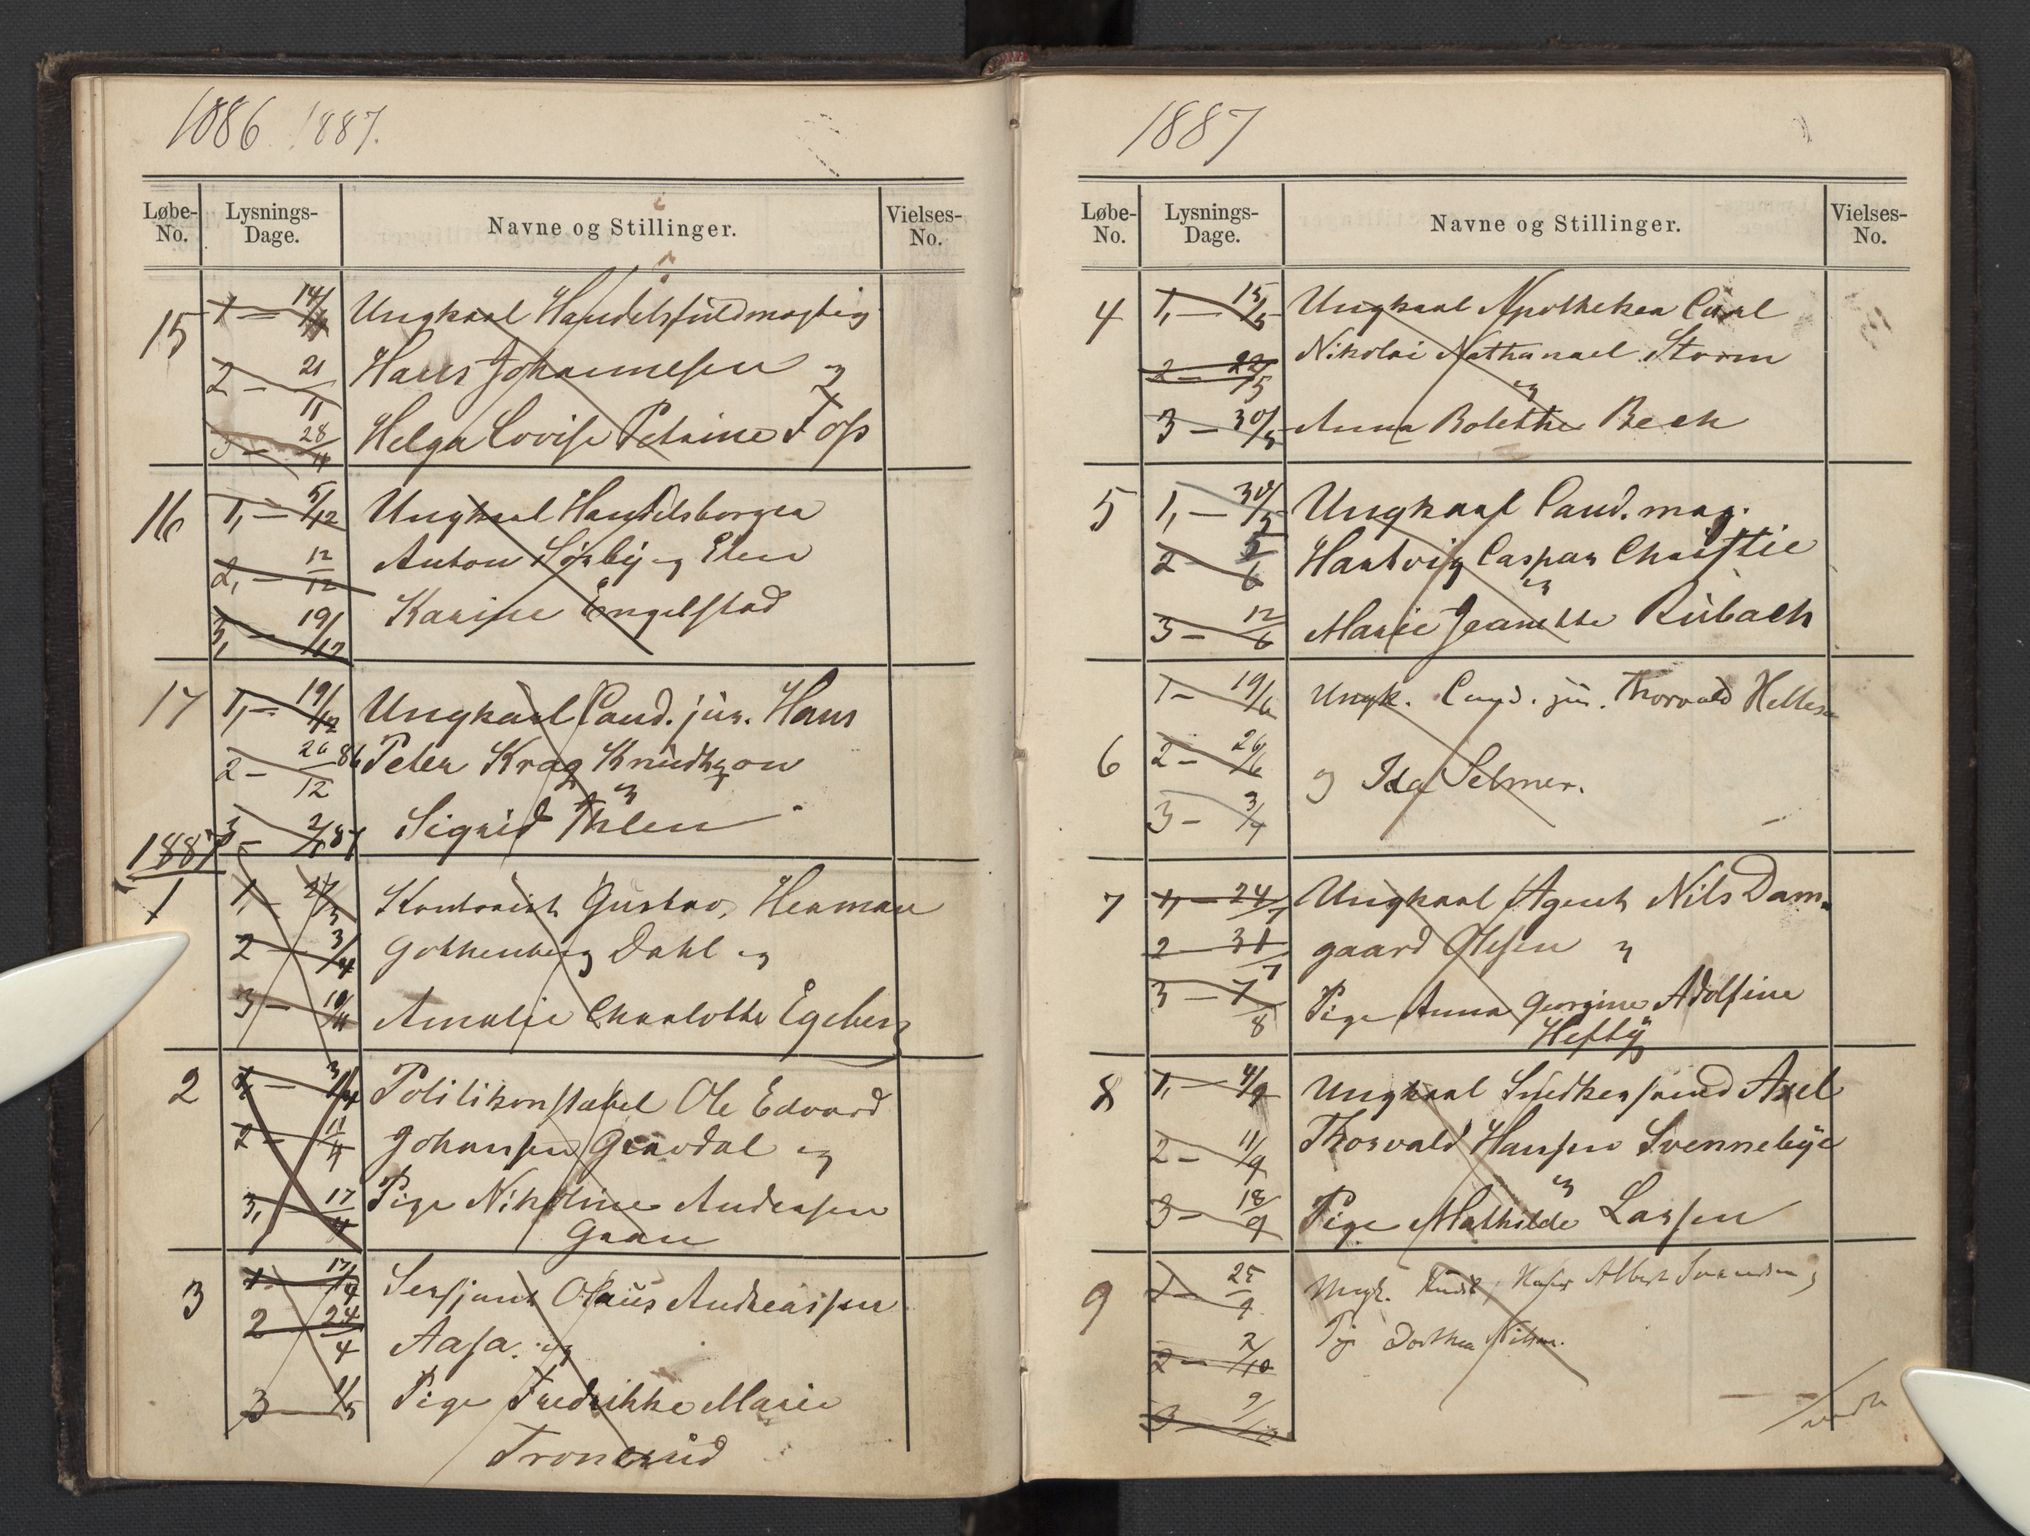 1886 1887.
Løbe-No. Lysnings-Dage. Navne og Stillinger. Vielses-No.
15
1 — 14/11 Ungkaal Handelsfuldmægtig
2 — 21/11 Hans Johannesen og
3 — 28/11 Helga Lovise Petrine Foss
16
1, — 5/12 Ungkaal Handelsborger
2, — 12/12 Anton Sørby og Elen
3, — 19/12 Karine Engelstad
17
1, — 19/12 Ungkaal Cand. jur. Hans
2 — 26/12 86 Peter Krag Knudtzon
og
3 — 2/1 87 Sigrid Thlen
1887
1
1, — 27/3 Kontorist Gustav Herman
2 — 3/4 Gothenberg Dahl og
3 — 10/4 Amalie Charlotte Egeberg
2
1 — 3/4 Politikonstabel Ole Edvard
2 — 11/4 Johansen Grevdal og
3, — 17/4 Pige Nikoline Andersen
Gran
3
1 — 17/4 Sersjant Olaus Andreassen
2 24/4 Aasa. og
3 — 1/5 Pige Fredrikke Marie
Tronerud
1887
Løbe-No. Lysnings-Dage. Navne og Stillinger. Vielses-No.
4
1, — 15/5 Ungkaal Apotheker Carl
2 — 22/5 Nikolai Nathanael Storm
og
3 — 30/5 Anna Bolethe Bech
5
1, — 30/5 Ungkaal Cand. mag.
2 — 5/6 Hartvig Caspar Christie
og
3 — 12/6 Marie Jeanette Rubach
6
1 — 19/6 Ungk. Cand. jur. Thorvald Hellesen
2 — 26/6
og Ida Selmer.
3 — 3/7
7
1, — 24/7 Ungkaal Agent Nils Dam-
2 — 31/7 gaard Olesen og
3 — 7/8 Pige Anna Georgine Adolfine
Hefty
8
1, — 4/9 Ungkaal Snedkersvend Axel
2 — 11/9 Thorvald Hansen Svennebye
og
3 — 18/9 Pige Mathilde Larsen
9
1 — 25/9 Ungk. Albert Svendsen og
2 — 2/10 Pige Dorthea Nilsen.
3 — 9/10